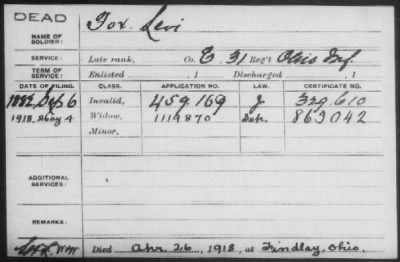 DEAD
NAME OF SOLDIER: Fox, Levi
SERVICE: Late rank, Co. E. 31 Reg't Ohio Inf.
TERM OF SERVICE: Enlisted , 1 Discharged , 1
DATE OF FILING. CLASS. APPLICATION NO. LAW. CERTIFICATE NO.
1882, Sep 6 Invalid, 459.169 J 329.610
1918, May 4 Widow, 1119870 863042
Minor,
ADDITIONAL SERVICES:
REMARKS:
Died Apr. 26, 1918, at Findlay, Ohio.